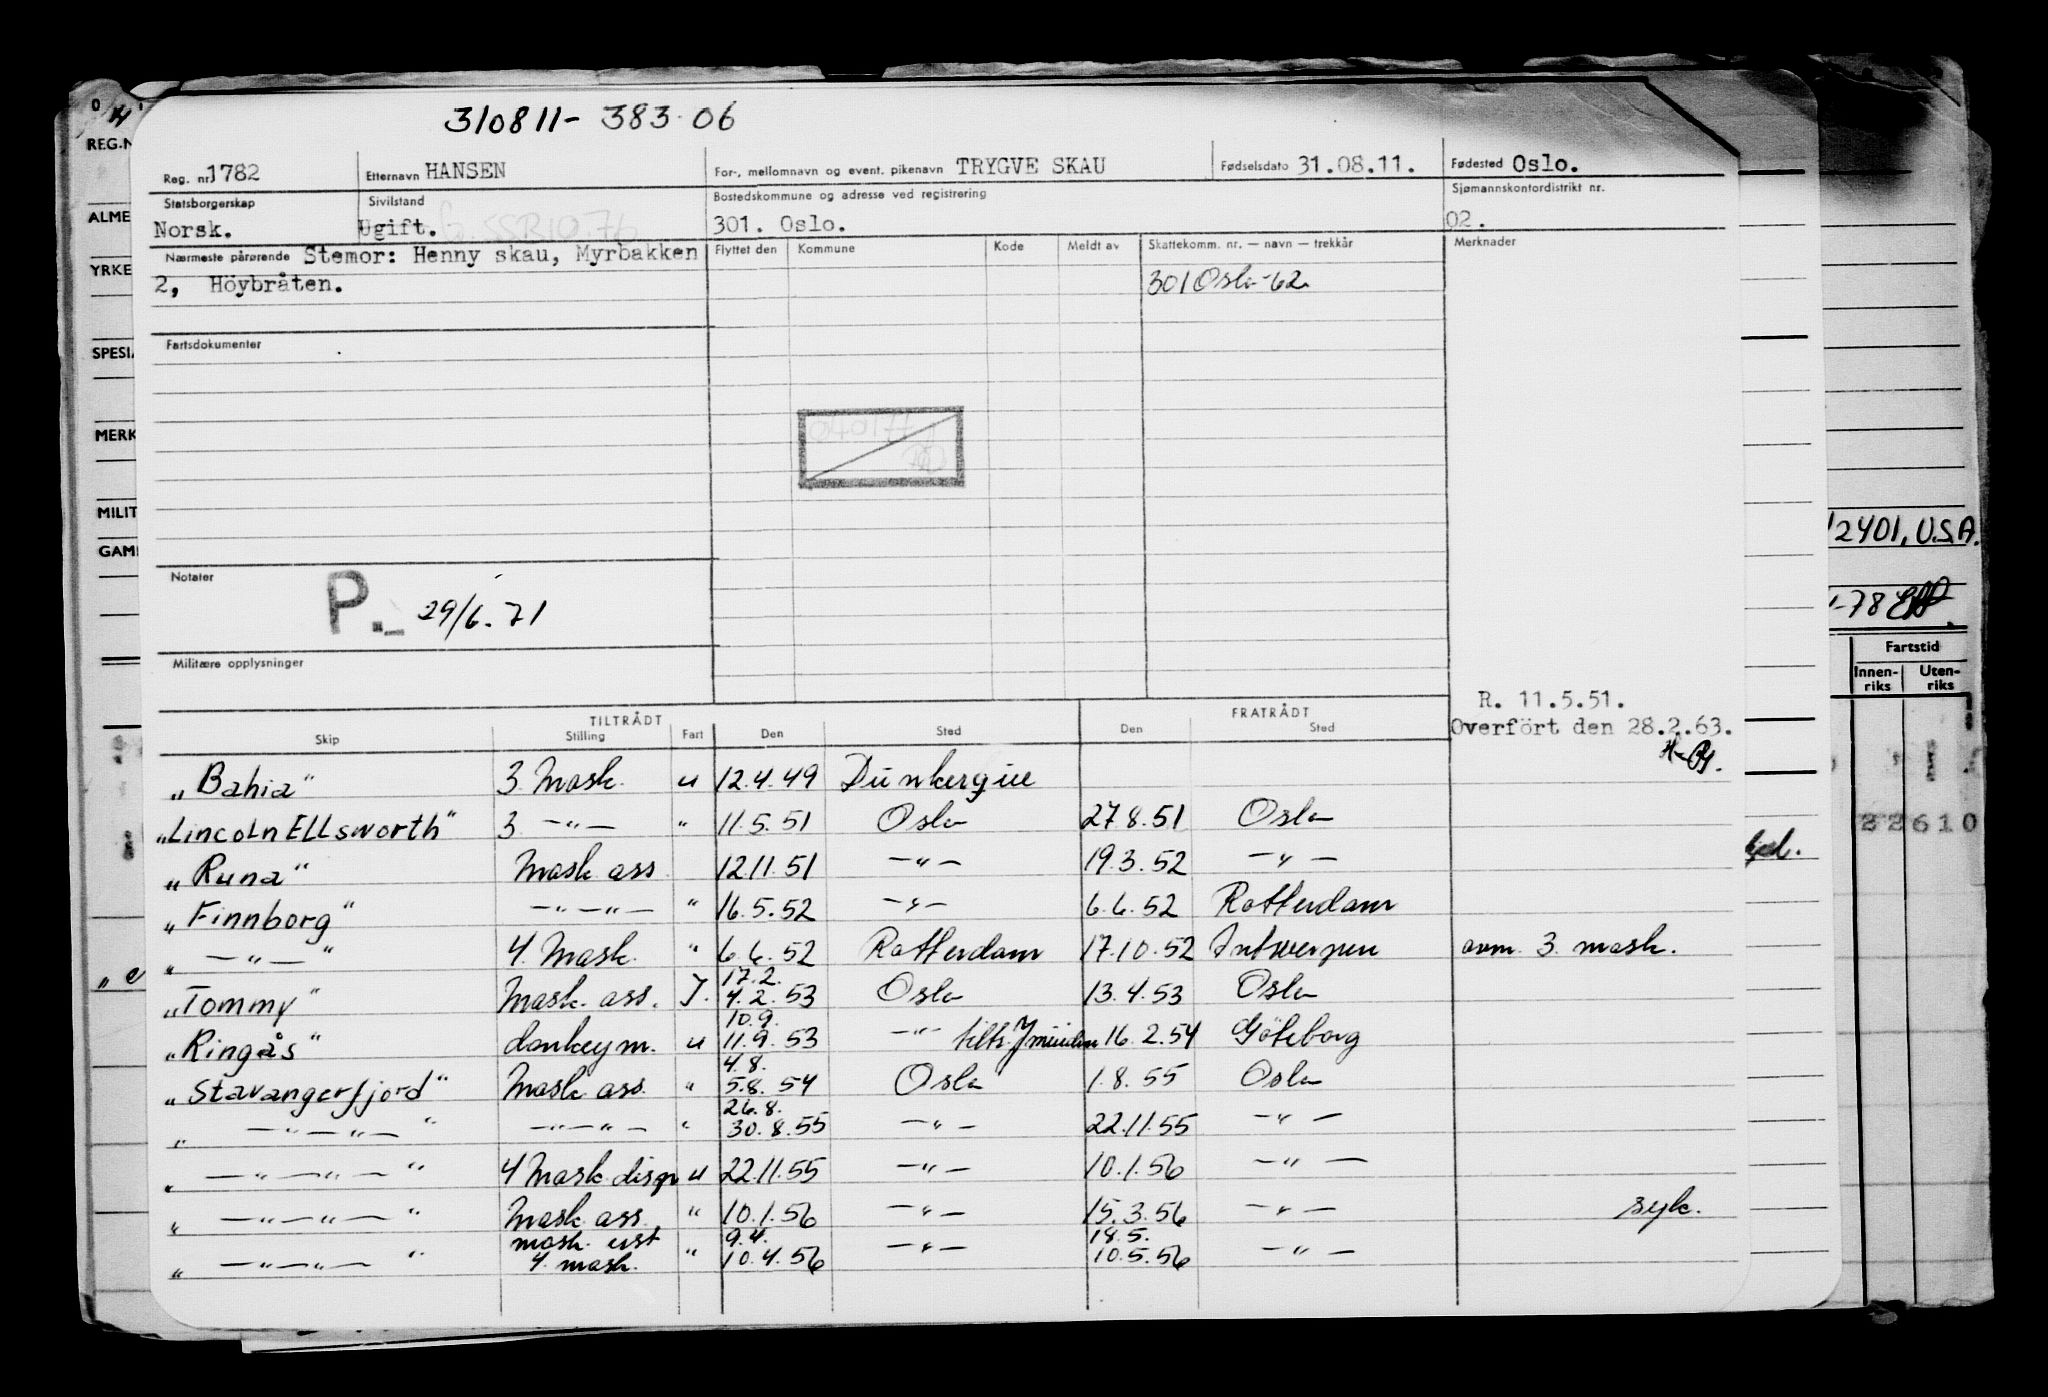 310811- 383.06
Reg. nr. 1782 Etternavn HANSEN For-, mellomnavn og event. pikenavn TRYGVE SKAU Fødselsdato 31.08.11. Fødested Oslo.
Statsborgerskap Sivilstand Bostedskommune og adresse ved registrering Sjømannskontordistrikt nr.
Norsk. Ugift. 301. Oslo. 02.
Nærmeste pårørende Stemor: Henny skau, Myrbakken Flyttet den Kommune Kode Meldt av Skattekomm. nr. — navn — trekkår Merknader
2, Höybråten. 301 Oslo-62
Fartsdokumenter
Notater P. 29/6.71
Militære opplysninger
R. 11.5.51.
Overfört den 28.2.63.
TILTRÅDT FRATRÅDT
Skip Stilling Fart Den Sted Den Sted
„Bahia" 3. Mask. u 12.4.49 Dunkerque
„Lincoln Ellsworth" 3 —"— " 11.5.51 Oslo 27.8.51 Oslo
„Runa" Mask ass 12.11.51 —"— 19.3.52 —"—
„Finnborg" —"—"— " 16.5.52 —"— 6.6.52 Rotterdam
„ —"— " 4. Mask. " 6.6.52 Rotterdam 17.10.52 Antwerpen avm. 3. mask.
17.2.
„Tommy" Mask. ass. I. 4.2.53 Oslo 13.4.53 Oslo
10.9.
„Ringås" donkeym. u 11.9.53 —"— tiltr. Ymuiden 16.2.54 Göteborg
4.8.
„Stavangerfjord" Mask ass. " 5.8.54 Oslo 1.8.55 Oslo
26.8.
„ —"—"— " —"—"— " 30.8.55 —"— 22.11.55 —"—
„ —"—"— " 4 Mask. disp u 22.11.55 —"— 10.1.56 —"—
„ —"—"— " Mask. ass. " 10.1.56 —"— 15.3.56 —"— syk.
mask. 9.4. 18.5.
„ —"—"— " 4. mask. " 10.4.56 —"— 10.5.56 —"—
REG.N
ALME
YRKE
SPESIA
MERK
MILIT
GAM
„e
12401, U.S.A.
-78
Fartstid
Innen-riks Uten-riks
22610